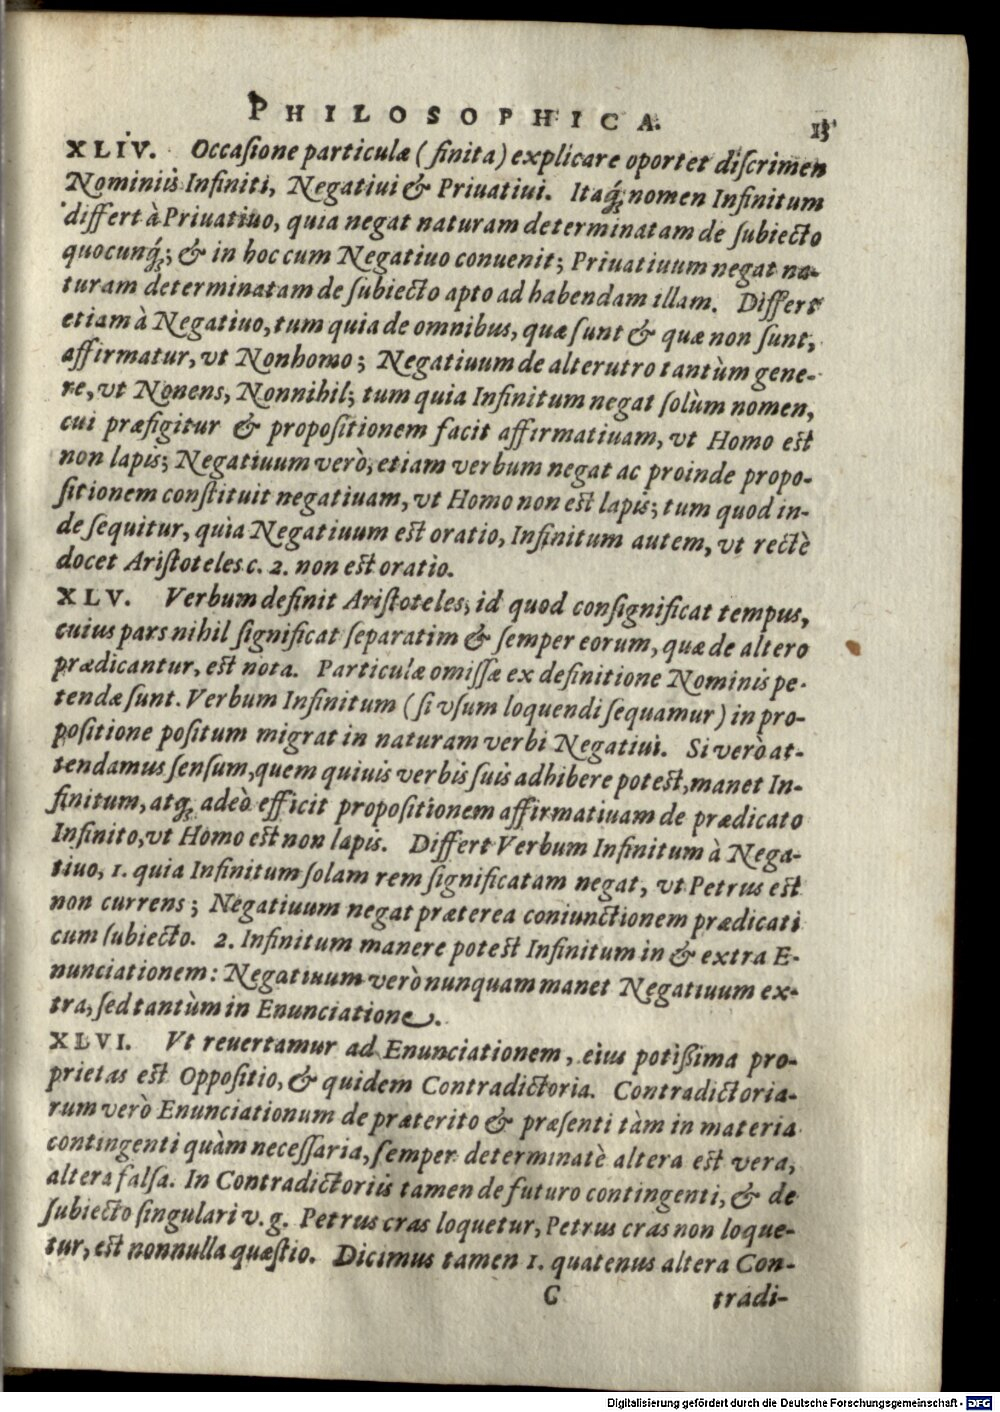 PHILOSOPHICA. 13
XLIV. Occaſione particulæ (finita) explicare oportet diſcrimen
Nominiis Infiniti, Negatiui & Priuatiui. Itaq́; nomen Infinitum
differt à Priuatiuo, quia negat naturam determinatam de ſubiecto
quocunq́;; & in hoc cum Negatiuo conuenit; Priuatiuum negat na-
turam determinatam de ſubiecto apto ad habendam illam. Differt
etiam à Negatiuo, tum quia de omnibus, quæ ſunt & quæ non ſunt,
affirmatur, vt Nonhomo; Negatiuum de alterutro tantùm gene-
re, vt Nonens, Nonnihil; tum quia Infinitum negat ſolùm nomen,
cui præfigitur & propoſitionem facit affirmatiuam, vt Homo eſt
non lapis; Negatiuum verò, etiam verbum negat ac proinde propo-
ſitionem conſtituit negatiuam, vt Homo non eſt lapis; tum quod in-
de ſequitur, quia Negatiuum eſt oratio, Infinitum autem, vt rectè
docet Ariſtoteles c. 2. non eſt oratio.
XLV. Verbum definit Ariſtoteles, id quod conſignificat tempus,
cuius pars nihil ſignificat ſeparatim & ſemper eorum, quæ de altero
prædicantur, eſt nota. Particulæ omiſſæ ex definitione Nominis pe-
tendæ ſunt. Verbum Infinitum (ſi vſum loquendi ſequamur) in pro-
poſitione poſitum migrat in naturam verbi Negatiui. Si verò at-
tendamus ſenſum, quem quiuis verbis ſuis adhibere poteſt, manet In-
finitum, atq; adeò efficit propoſitionem affirmatiuam de prædicato
Infinito, vt Homo eſt non lapis. Differt Verbum Infinitum à Nega-
tiuo, 1. quia Infinitum ſolam rem ſignificatam negat, vt Petrus eſt
non currens; Negatiuum negat præterea coniunctionem prædicati
cum ſubiecto. 2. Infinitum manere poteſt Infinitum in & extra E-
nunciationem: Negatiuum verò nunquam manet Negatiuum ex-
tra, ſed tantùm in Enunciatione.
XLVI. Vt reuertamur ad Enunciationem, eius potißima pro-
prietas eſt Oppoſitio, & quidem Contradictoria. Contradictoria-
rum verò Enunciationum de præterito & præſenti tàm in materia
contingenti quàm neceſſaria, ſemper determinatè altera eſt vera,
altera falſa. In Contradictoriis tamen de futuro contingenti, & de
ſubiecto ſingulari v. g. Petrus cras loquetur, Petrus cras non loque-
tur, eſt nonnulla quæſtio. Dicimus tamen 1. quatenus altera Con-
C tradi-
Digitalisierung gefördert durch die Deutsche Forschungsgemeinschaft - DFG